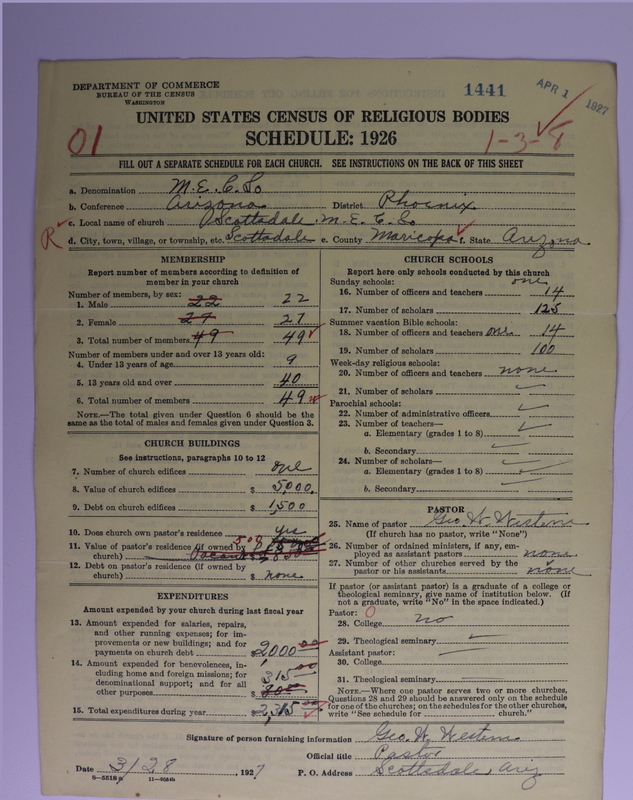 DEPARTMENT OF COMMERCE
BUREAU OF THE CENSUS
WASHINGTON
1441
APR 1 1927
UNITED STATES CENSUS OF RELIGIOUS BODIES
SCHEDULE: 1926
01
1-3-8
FILL OUT A SEPARATE SCHEDULE FOR EACH CHURCH. SEE INSTRUCTIONS ON THE BACK OF THIS SHEET
a. Denomination M.E.C.So
b. Conference Arizona District Phoenix
c. Local name of church Scottsdale M.E.C.So
R
d. City, town, village, or township, etc. Scottsdale e. County Maricopa f. State Arizona
MEMBERSHIP
Report number of members according to definition of
member in your church
Number of members, by sex:
1. Male 22 22
2. Female 27 27
3. Total number of members 49 49
Number of members under and over 13 years old:
4. Under 13 years of age 9
5. 13 years old and over 40
6. Total number of members 49
NOTE.—The total given under Question 6 should be the
same as the total of males and females given under Question 3.
CHURCH BUILDINGS
See instructions, paragraphs 10 to 12
7. Number of church edifices one
8. Value of church edifices $ 5000.
9. Debt on church edifices $ 1,500
10. Does church own pastor's residence? yes
11. Value of pastor's residence (if owned by
church)
12. Debt on pastor's residence (if owned by
church) $ none
EXPENDITURES
Amount expended by your church during last fiscal year
13. Amount expended for salaries, repairs,
and other running expenses; for im-
provements or new buildings; and for
payments on church debt $ 2000.00
14. Amount expended for benevolences, in-
cluding home and foreign missions; for
denominational support; and for all
other purposes $ 315.00
15. Total expenditures during year $ 2,315.00
CHURCH SCHOOLS
Report here only schools conducted by this church
Sunday schools: one
16. Number of officers and teachers 14
17. Number of scholars 125
Summer vacation Bible schools:
18. Number of officers and teachers one 14
19. Number of scholars 100
Week-day religious schools:
20. Number of officers and teachers none
21. Number of scholars
Parochial schools:
22. Number of administrative officers
23. Number of teachers—
a. Elementary (grades 1 to 8)
b. Secondary
24. Number of scholars—
a. Elementary (grades 1 to 8)
b. Secondary
PASTOR
25. Name of pastor Geo. W. Westem
(If church has no pastor, write "None")
26. Number of ordained ministers, if any, em-
ployed as assistant pastors none
27. Number of other churches served by the
pastor or his assistants none
If pastor (or assistant pastor) is a graduate of a college or
theological seminary, give name of institution below. (If
not a graduate, write "No" in the space indicated.)
Pastor: 0
28. College no
29. Theological seminary
Assistant pastor:
30. College
31. Theological seminary
NOTE.—Where one pastor serves two or more churches,
Questions 28 and 29 should be answered only on the schedule
for one of the churches; on the schedules for the other churches,
write "See schedule for church."
Signature of person furnishing information Geo. W. Westem
Official title Pastor
Date 3/28, 1927 P. O. Address Scottsdale, Ariz
8-5518